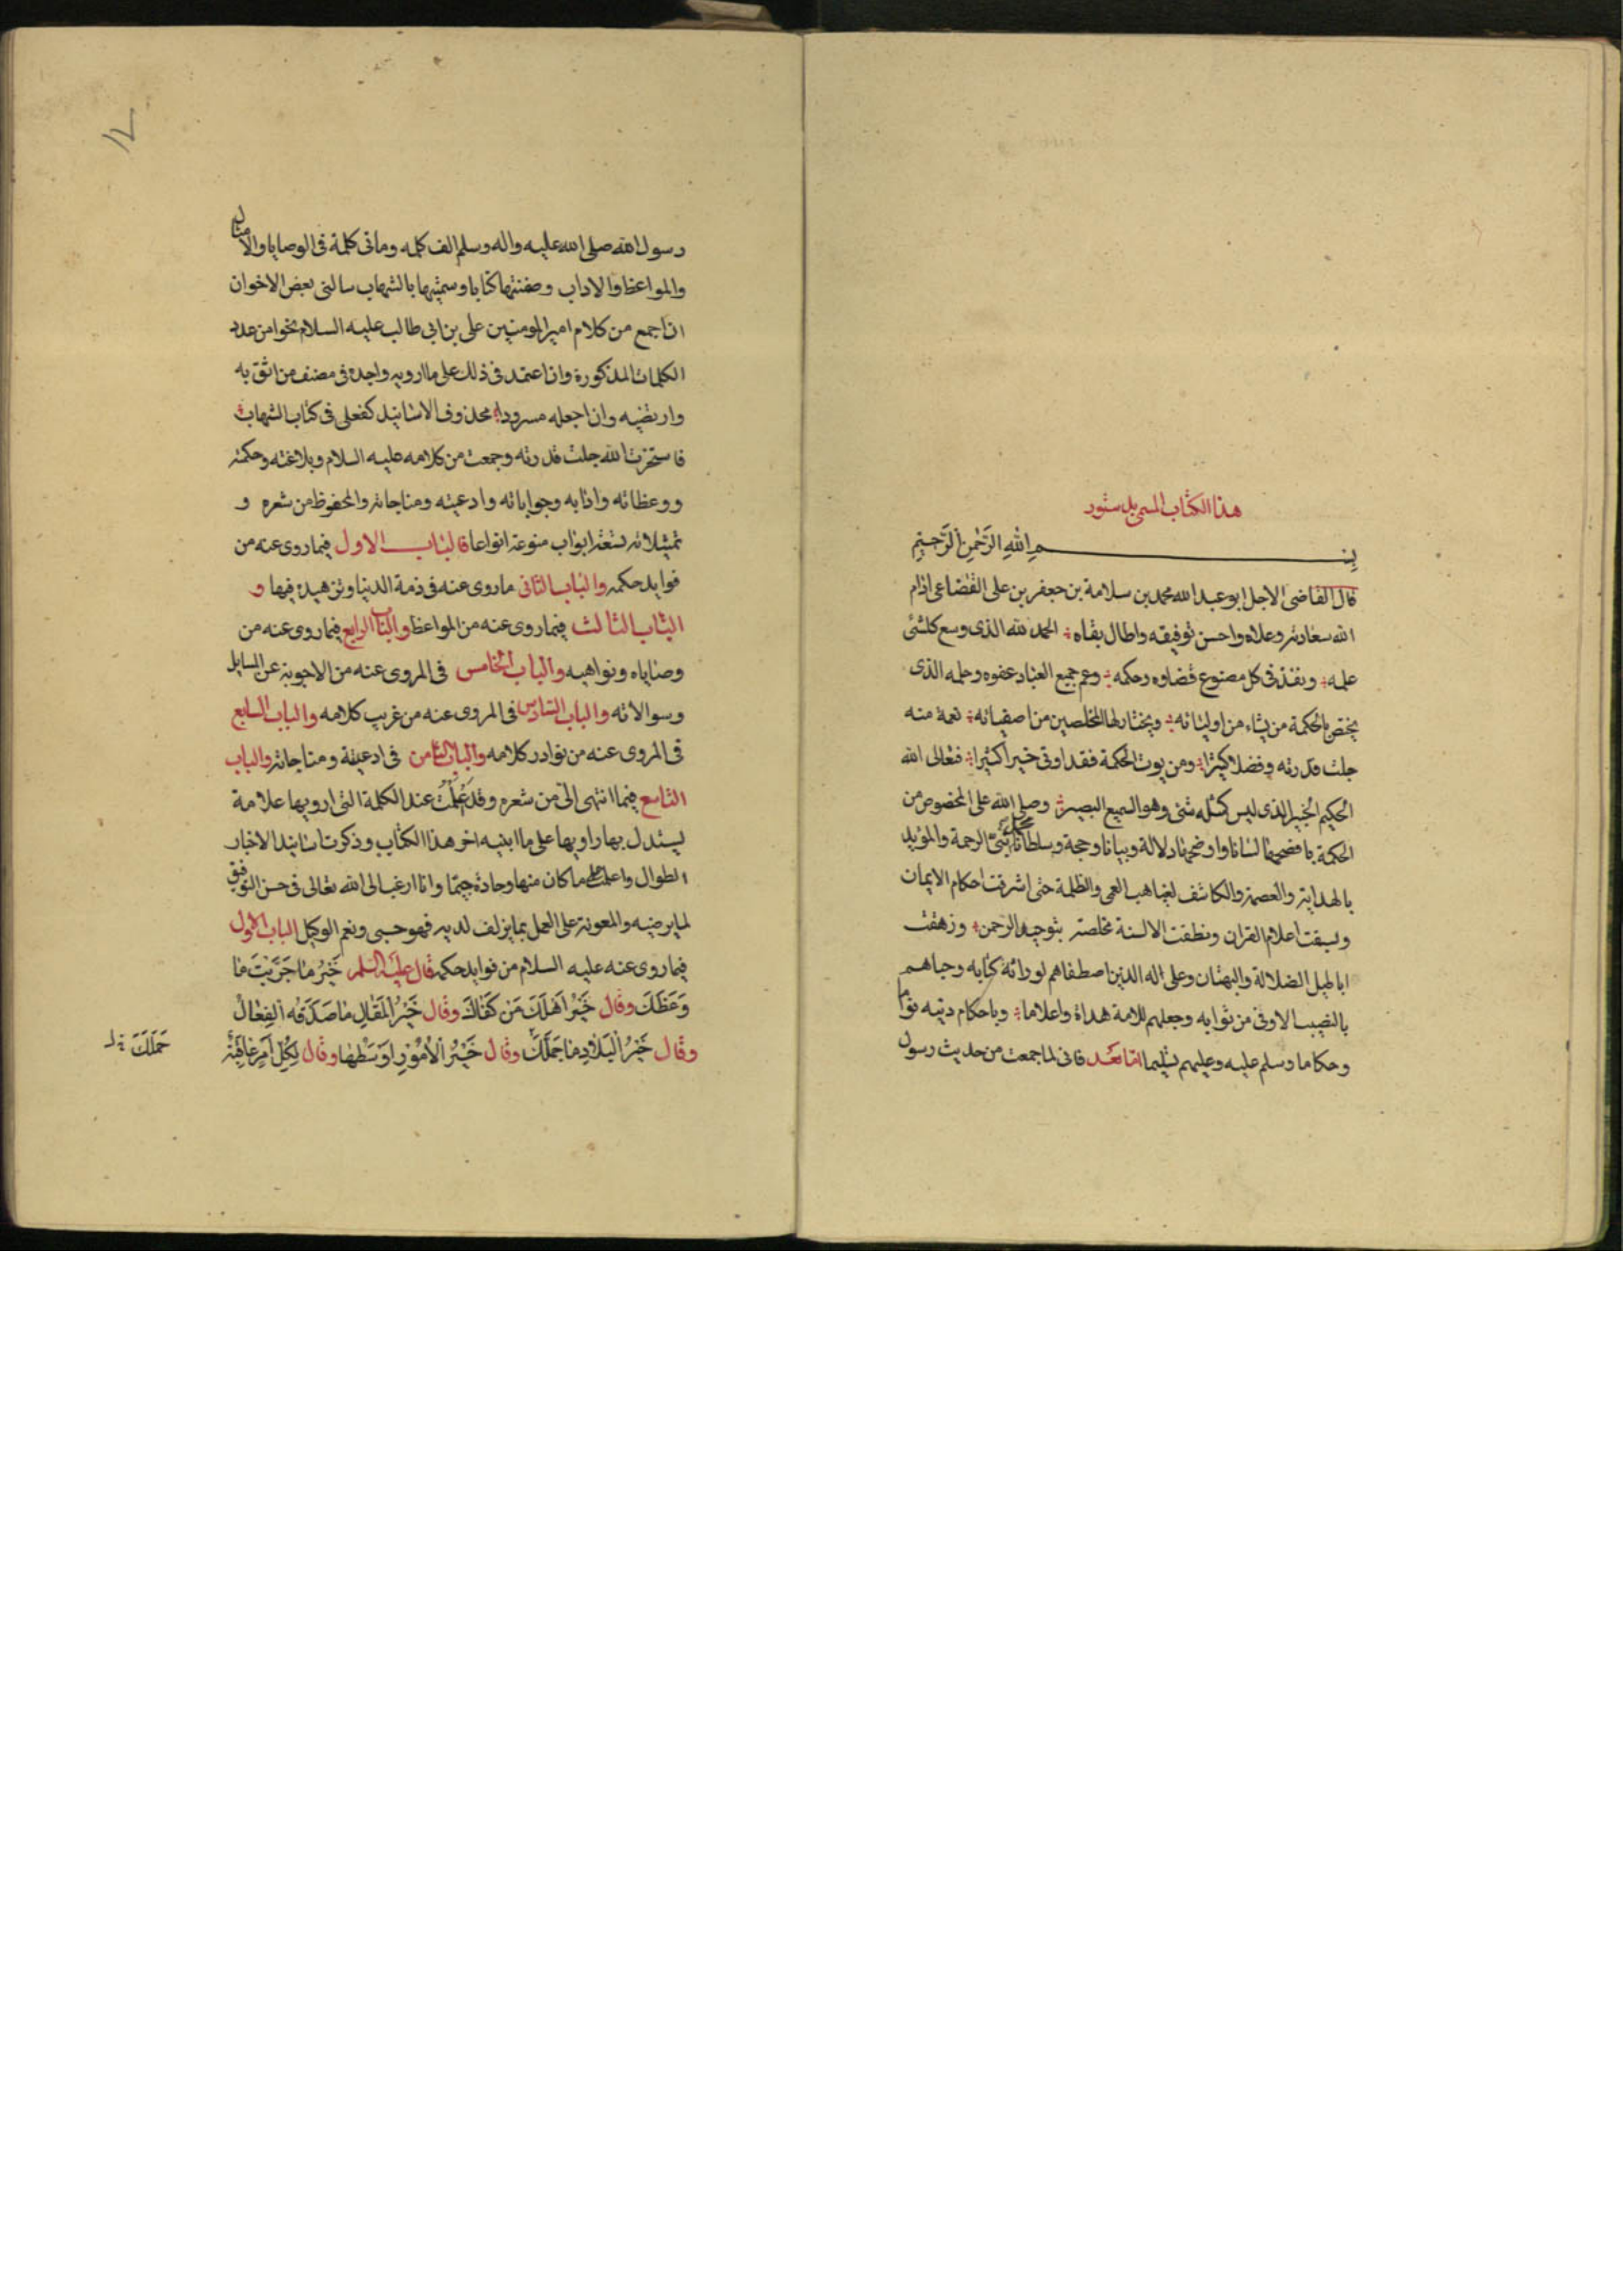 هذا الكتاب المسمى بدستور
بسم الله الرحمن الرحيم
قال القاضى الاجل ابو عبد الله محمد بن سلامة بن جعفر بن على القضاعى ادام
الله سعادته وعلاه واحسن توفيقه واطال بقاه الحمد لله الذى وسع كلشئ
علمه ونفذ فى كل مصنوع قضاوه وحكمه وعم جميع العباد عفوه وحلمه الذى
يختص بالحكمة من يشاء من اوليائه ويختار لها المخلصين من اصفيائه نعمة منه
جلت قدرته وفضلا كبيرا ومن يوت الحكمة فقد اوتى خيرا كثيرا فتعالى الله
الحكيم الخبير الذى ليس كمثله شئ وهو السميع البصير وصلى الله على المخصوص من
الحكمة بافصحها لسانا واوضحها دلالة وبيانا وحجة وسلطانا محمد نبى الرحمة والمؤيد
بالهداية والعصمة والكاشف لغياهب العمى والظلمة حتى اشرقت احكام الايمان
وبسقت اعلام القران ونطقت الالسنة مخلصة بتوحيد الرحمن وزهقت
اباطيل الضلالة والبهتان وعلى اله الذين اصطفاهم لوراثة كتابه وحباهم
بالنصيب الاوفى من ثوابه وجعلهم للامة هداة واعلاما وباحكام دينه قواما
وحكاما وسلم عليه وعليهم تسليما اما بعد فانى لما جمعت من حديث رسول
رسول الله صلى الله عليه واله وسلم الف كلمه ومائى كلمة فى الوصايا والامثال
والمواعظ والاداب وضمنتها كتابا وسميتها بالشهاب سالنى بعض الاخوان
ان اجمع من كلام امير المومنين على بن ابى طالب عليه السلام نحوا من عدد
الكلمات المذكورة وان اعتمد فى ذلك على ما ارويه واجده فى مصنف من اثق به
وارتضيه وان اجعله مسرودا محذوف الاسانيد كفعلى فى كتاب الشهاب
فاستخرت الله جلت قدرته وجمعت من كلامه عليه السلام وبلاغته وحكمه
ووعظاته وادابه وجواباته وادعيته ومناجاته والمحفوظ من شعره و
تمثيلاته تسعة ابواب منوعة انواعا فالباب الاول فيما روى عنه من
فوايد حكمه والباب الثانى ما روى عنه فى ذمة الدنيا وتزهيده فيها و
الباب الثالث فيما روى عنه من المواعظ والباب الرابع فيما روى عنه من
وصاياه ونواهيه والباب الخامس فى المروى عنه من الاجوبة عن المسايل
وسوالاته والباب السادس فى المروى عنه من غريب كلامه والباب السابع
فى المروى عنه من نوادر كلامه والباب الثامن فى ادعيته ومناجاته والباب
التاسع فيما انتهى الى من شعره وقد علمت عند الكلمة التى ارويها علامة
يستدل بها راويها على ما ابينه اخر هذا الكتاب وذكرت اسانيد الاخبار
الطوال واعلمت على ما كان منها وجادة جيما وانا ارغب الى الله تعالى فى حسن التوفيق
لما يرضيه والمعونة على العمل بما يزلف لديه فهو حسبى ونعم الوكيل الباب الاول
فيما روى عنه عليه السلام من فوايد حكمه قال عليه السلم خَيْرُ ما جَرَّبْتَ ما
وَعَظَكَ وقال خَيْرُ اَهْلِكَ مَن كَفاكَ وقال خَيْرُ المَقالِ ما صَدَّقَه الفِعالُ
وقال خَيْرُ البِلادِ ما حَمَلَكَ وقال خَيْرُ الاُمُورِ اَوسَطُها وقال لِكُلِّ اَمرٍ عاقِبَةٌ
حَمَلَكَ